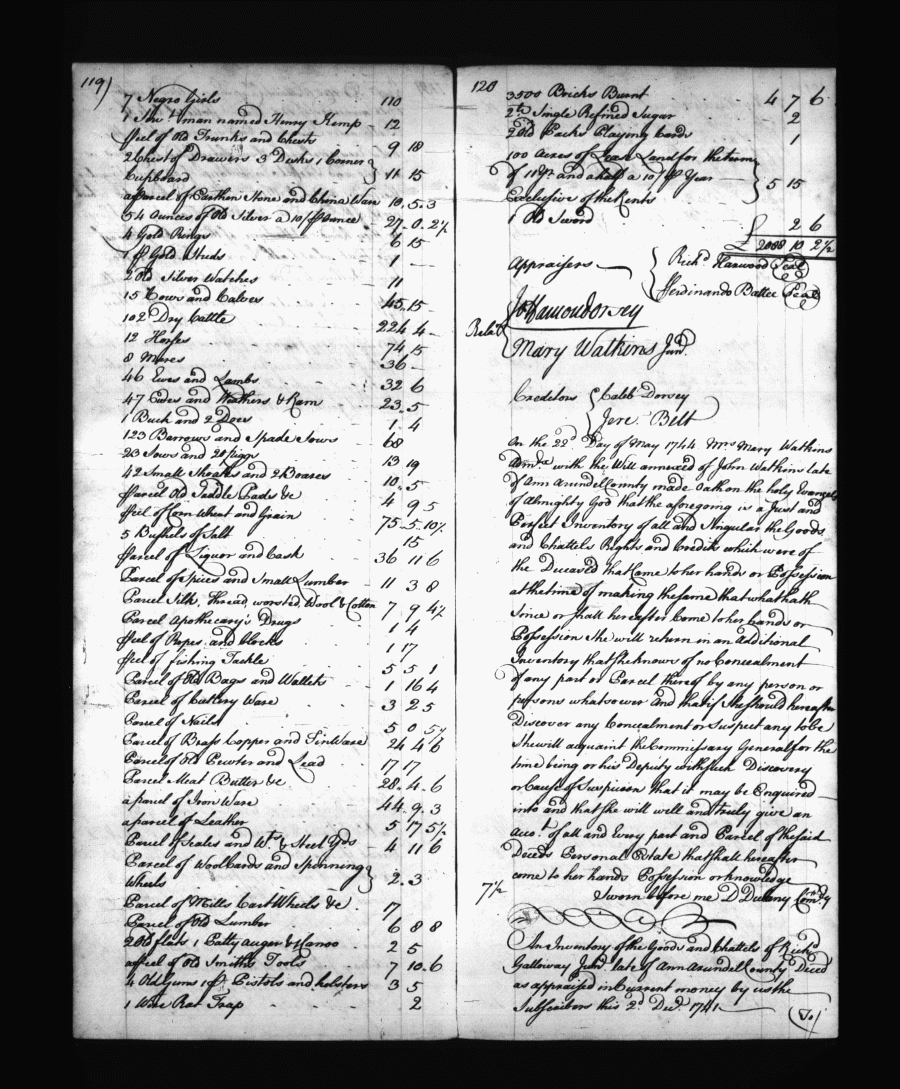 119)
7 Negro Girls 110
1 Serv.t man named Henry Kemp 12
Pcel of Old Trunks and Chests 9 18
2 Chest of Drawers 3 Desks 1 Corner
Cupboard 11 15
a Parcel of Earthen Stone and China Ware 10. 5. 3
54 Ounces of Old Silver a 10/ P Ounce 27. 0. 2½
4 Gold Rings 6 15
1 P Gold Studs 1
2 Old Silver Watches 11
15 Cows and Calves 45. 15
102 Dry Cattle 224 4
12 Horses 74 15
8 Mares 36
46 Ewes and Lambs 32 6
47 Ewes and Weathers & Ram 23. 5
1 Buck and 2 Does 1 4
123 Barrows and Spade Sows 68
23 Sows and 20 pigs 13 19
42 Small Shoats and 2 Boares 10. 5
Parcel Old Saddle &c 4 9 5
Pcel of Corn Wheat and Grain 75 5. 10½
5 Bushels of Salt 15
Parcel of Liquor and Cask 36 11 6
Parcel of Spices and Small Lumber 11 3 8
Parcel Silk, Thread, worsted, Wool & Cotton 7 9 4½
Parcel Apothecary's Drugs 1 4
Pcel of Ropes and blocks 1 17
Pcel of fishing Tackle 5 5 1
Parcel of Old Bags and Wallets 1 16 4
Parcel of Cutlery Ware 3 2 5
Parcel of Nails 5 0 5½
Parcel of Brass Copper and Tin Ware 24 4 6
Parcel of Old Pewter and Lead 17 17
Parcel Meat Butter &c 28. 4. 6
a parcel of Iron Ware 44. 9. 3
a parcel of Leather 5 7 5½
Parcel of Scales and W.ts & Steel Yds 4 11 6
Parcel of Woolcards and Spinning
Wheels 2. 3
Parcel of Mills Cart Wheels &c 7
Parcel of Old Lumber 6 8 8
2 Old flats 1 Petty auger & Canoo 2 5
a Pcel of Old Smiths Tools 7 10. 6
4 Old Guns 1 P.r Pistols and holsters 3 5
1 Wire Rat Trap 2
120
3500 Bricks Burnt 4 7 6
2 lb Single Refined Sugar 2
2 Old Packs Playing Cards 1
100 Acres of Lease Land for the term
of 11 Yrs and a half a 10/ P Year 5 15
Exclusive of the Rents
1 Old Sword 2 6
£ 2088 10 2½
Appraisers Rich.d Harwood Seal
Ferdinando Battee Seal
Relat.s
Mary Watkins Jun.r
Creditors Caleb Dorsey
Jere. Belt
On the 22.d Day of May 1744 Mrs Mary Watkins
Adm.x with the Will annexed of John Watkins late
of Ann Arundell County made Oath on the holy Evangels
of Almighty God that the aforegoing is a Just and
Perfect Inventory of all and Singular the Goods
and Chattels Rights and Credits which were of
the Deceased that Came to her hands or Possession
at the time of making the same that what hath
since or shall hereafter Come to her hands or
Possession she will return in an Additional
Inventory that she knows of no Concealment
of any part or Parcel thereof by any person or
persons whatsoever and that if she should hereafter
Discover any Concealment or Suspect any to be
she will acquaint the Commissary General for the
time being or his Deputy with such Discovery
or Cause of Suspicion that it may be Enquired
into and that she will well and truly give an
Acco.t of all and Every part and Parcel of the said
Deceds Personal Estate that shall hereafter
come to her hands Possession or knowledge
7½ Sworn before me D Dulany Com.ry
An Inventory of the Goods and Chattels of Rich.d
Galloway Jun.r late of Ann Arundel County Deced
as appraised in Current money by us the
Subscribers this 2.d Dec.r 1741